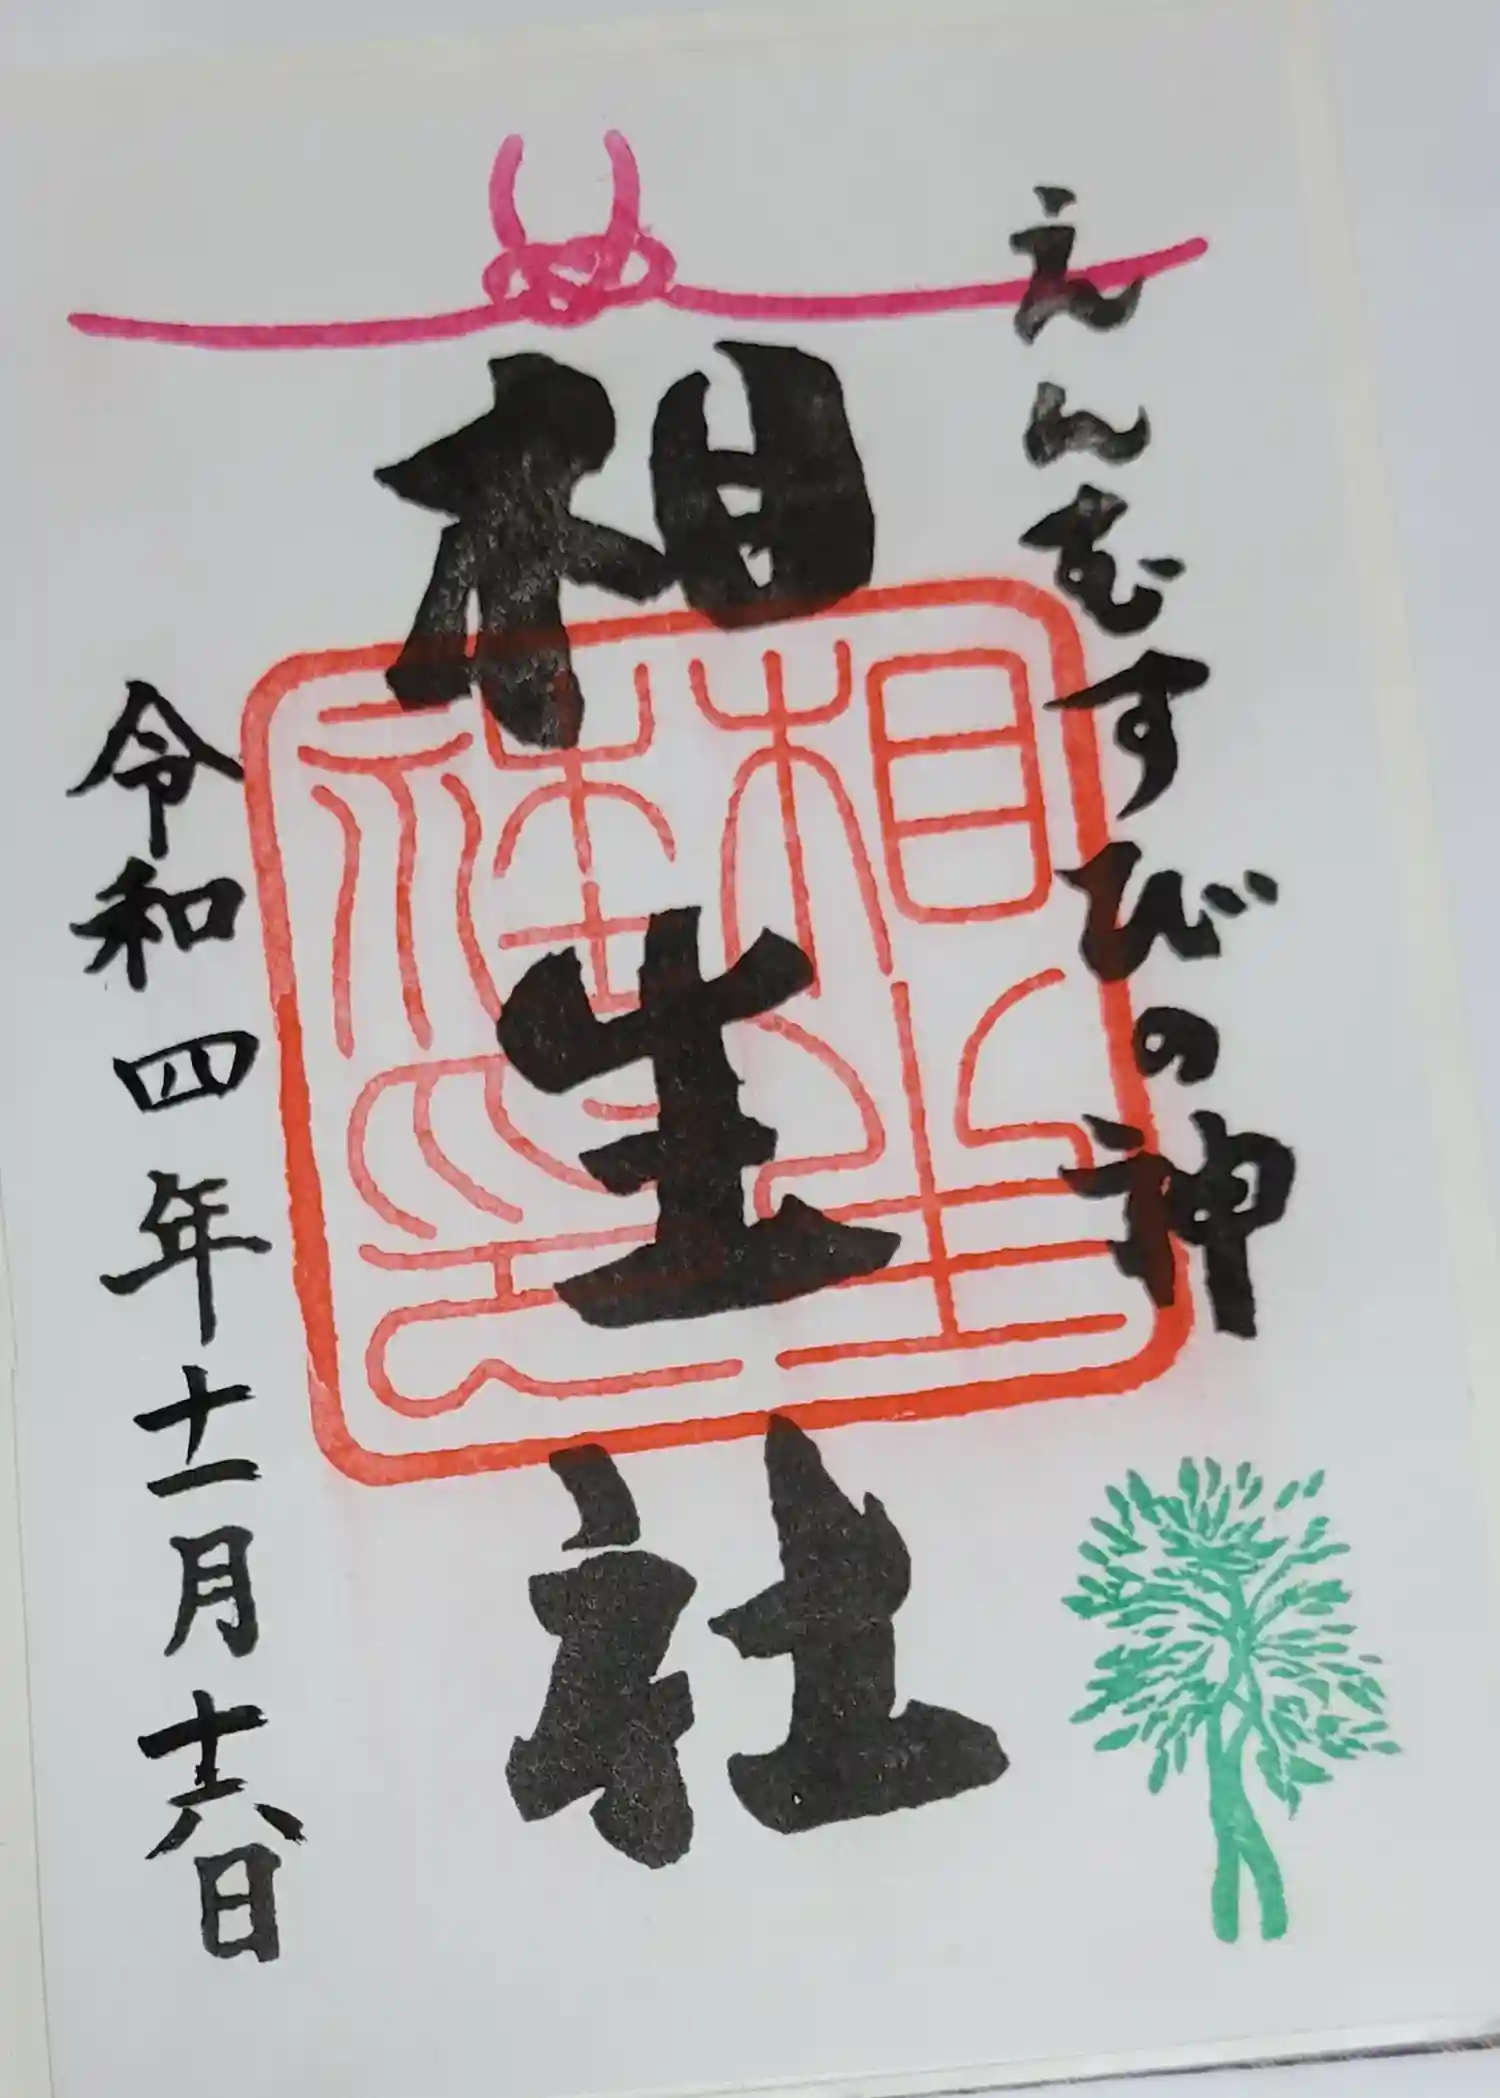 えんむすびの神
相生社
令和四年十一月十六日